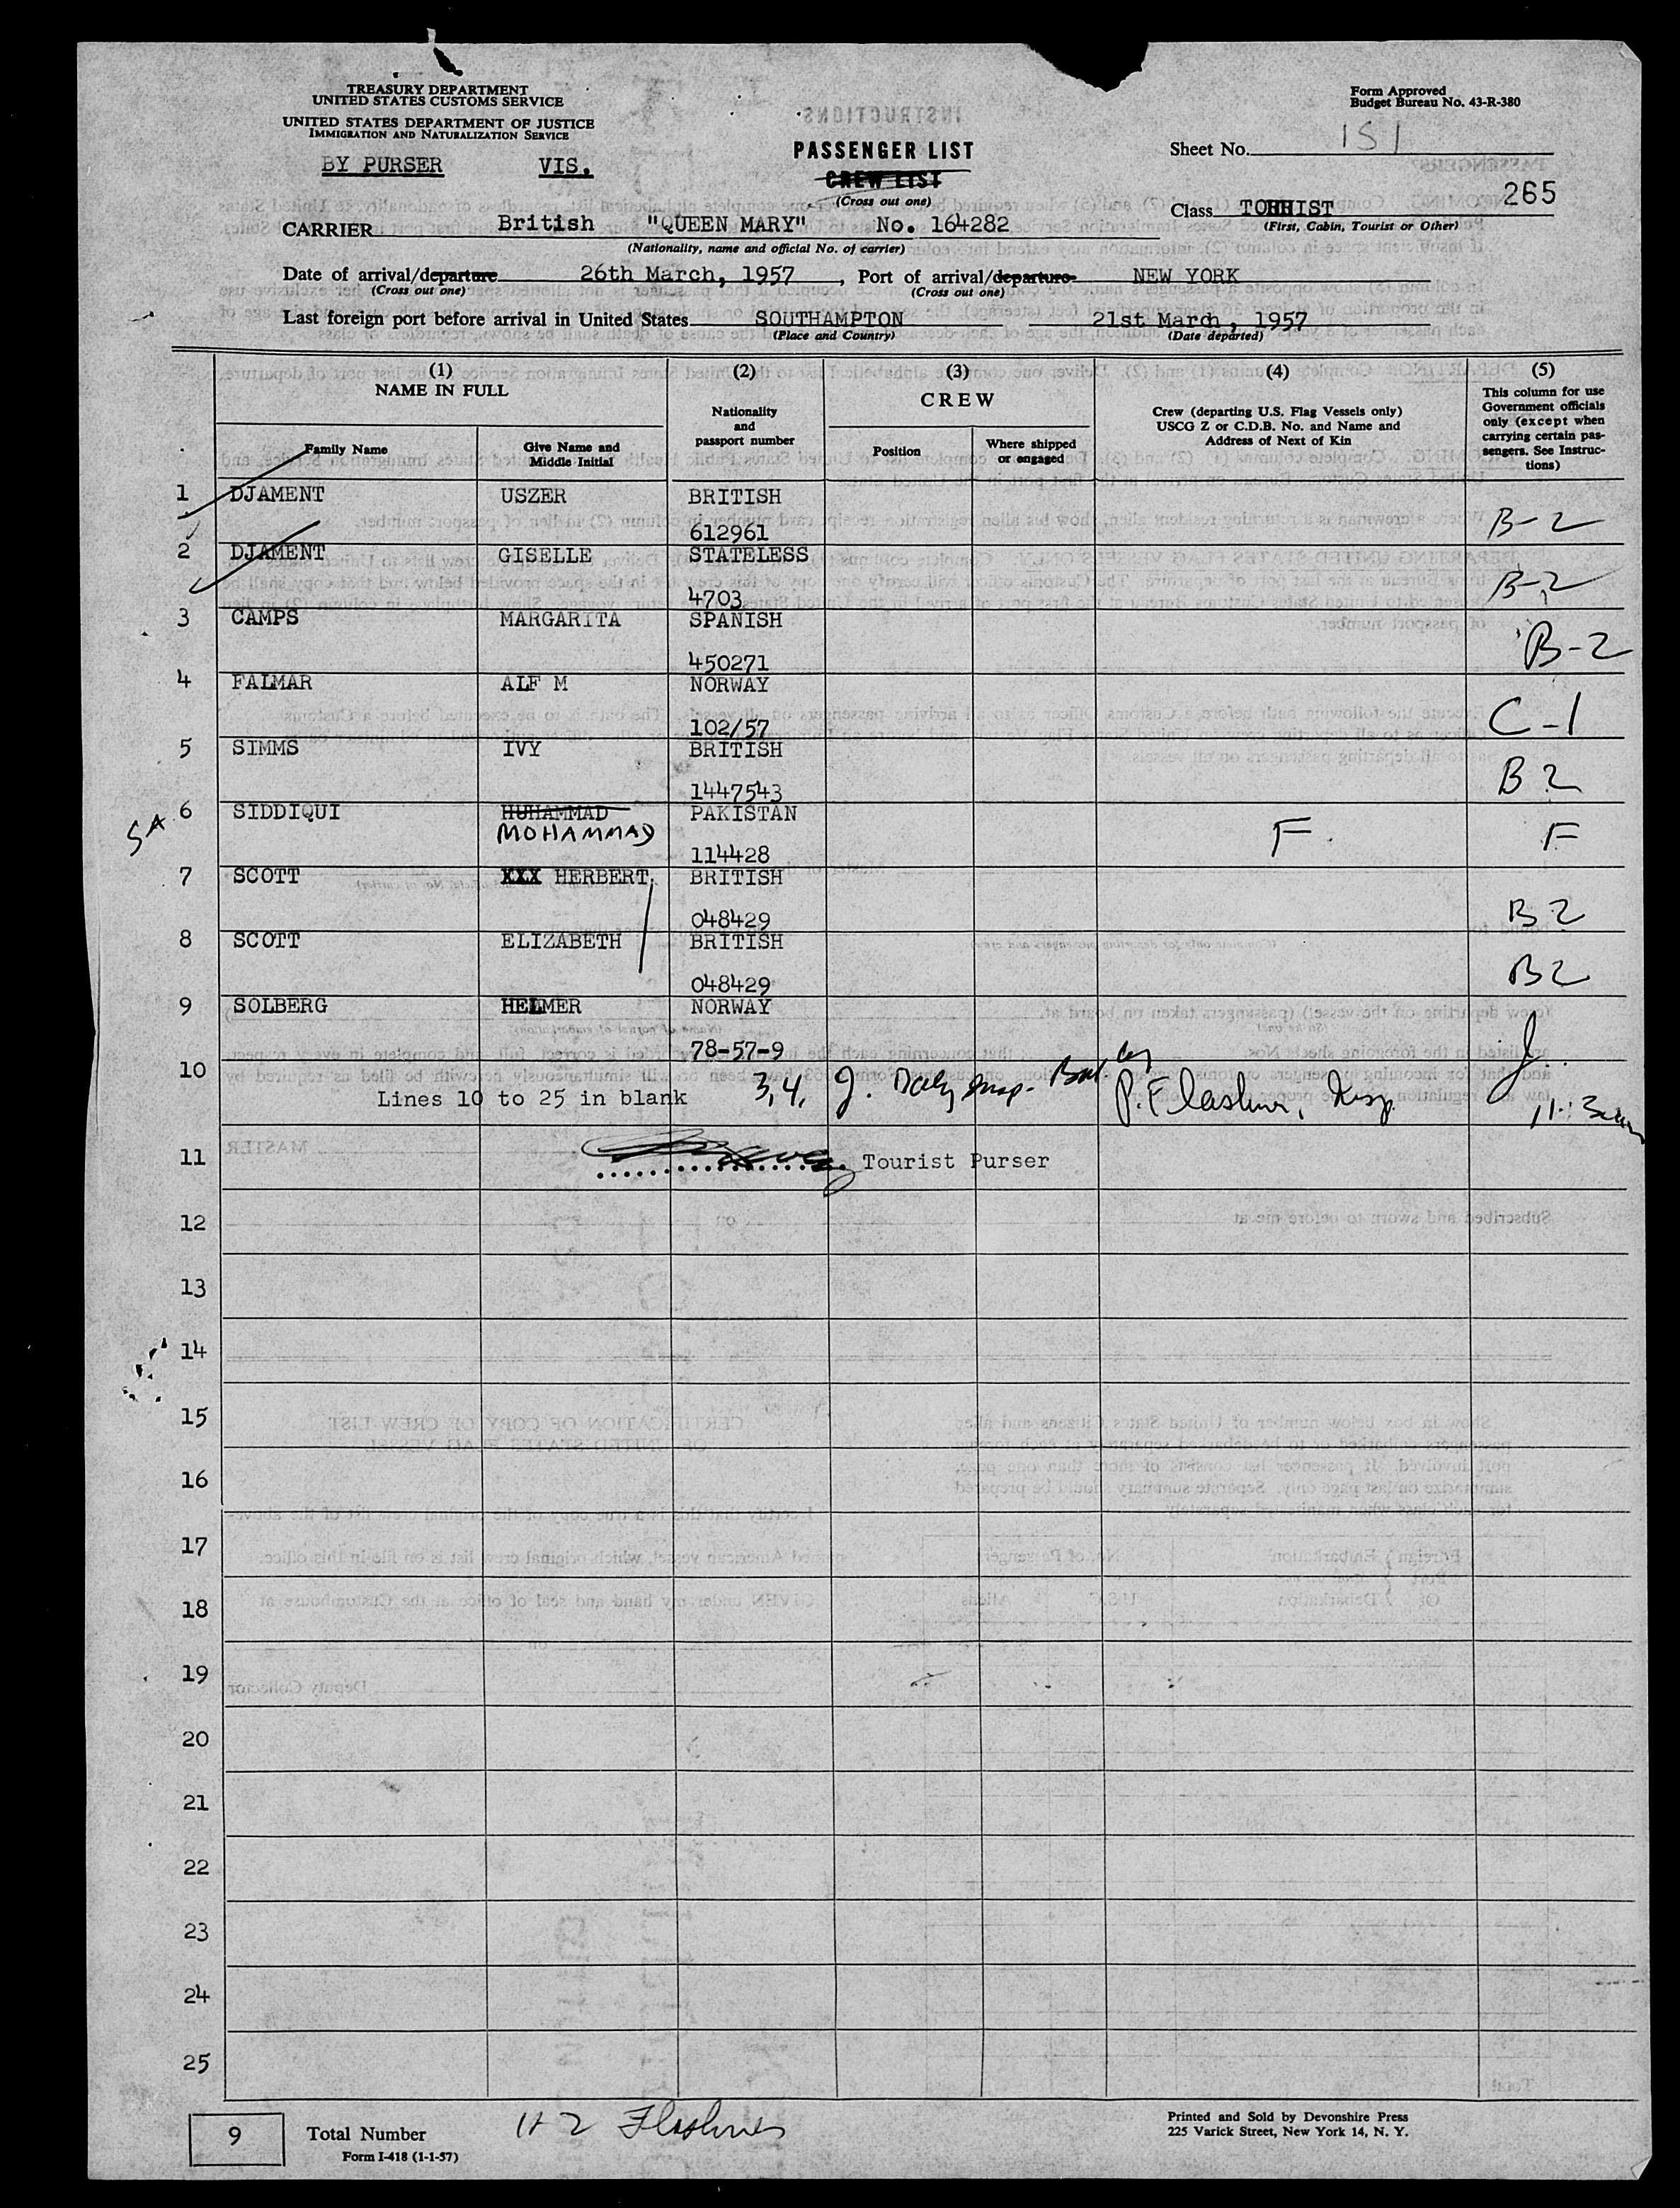 TREASURY DEPARTMENT
UNITED STATES CUSTOMS SERVICE
UNITED STATES DEPARTMENT OF JUSTICE
IMMIGRATION AND NATURALIZATION SERVICE
BY PURSER VIS.
PASSENGER LIST
CREW LIST
(Cross out one)
Form Approved
Budget Bureau No. 43-R-380
Sheet No. 151
265
Class TOURIST
(First, Cabin, Tourist or Other)
CARRIER British "QUEEN MARY" No. 164282
(Nationality, name and official No. of carrier)
Date of arrival/departure 26th March, 1957, Port of arrival/departure NEW YORK
(Cross out one) (Cross out one)
Last foreign port before arrival in United States SOUTHAMPTON 21st March, 1957
(Place and Country) (Date departed)
(1) (2) (3) (4) (5)
NAME IN FULL
Nationality
and
passport number
CREW
Crew (departing U.S. Flag Vessels only)
USCG Z or C.D.B. No. and Name and
Address of Next of Kin
This column for use
Government officials
only (except when
carrying certain pas-
sengers. See Instruc-
tions)
Family Name
Give Name and
Middle Initial
Position
Where shipped
or engaged
1 DJAMENT USZER BRITISH
612961 B-2
2 DJAMENT GISELLE STATELESS
4703 B-2
3 CAMPS MARGARITA SPANISH
450271 B-2
4 FALMAR ALF M NORWAY
102/57 C-1
5 SIMMS IVY BRITISH
1447543 B2
SA 6 SIDDIQUI MUHAMMAD PAKISTAN
MOHAMMAD F. F
114428
7 SCOTT XXX HERBERT BRITISH
048429 B2
8 SCOTT ELIZABETH BRITISH
048429 B2
9 SOLBERG HELMER NORWAY
78-57-9
10
Lines 10 to 25 in blank 3,4, J. Daly Insp. P. Flashner, Insp.
11 Tourist Purser
12
13
14
15
16
17
18
19
20
21
22
23
24
25
9 Total Number
Form I-418 (1-1-57)
1+2 Flashner
Printed and Sold by Devonshire Press
225 Varick Street, New York 14, N. Y.